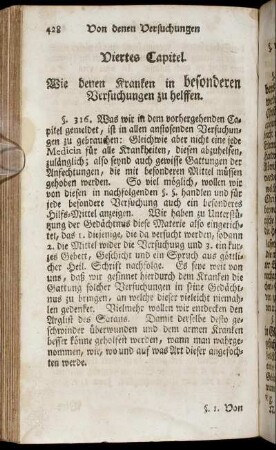 428 Von denen Versuchungen
Viertes Capitel.
Wie denen Kranken in besonderen
Versuchungen zu helffen.
§. 316. Was wir in dem vorhergehenden Ca-
pitel gemeldet, ist in allen anstosenden Versuchun-
gen zu gebrauchen: Gleichwie aber nicht eine jede
Medicin für alle Krankheiten, diesen abzuhelfen,
zulänglich; also seynd auch gewisse Gattungen der
Anfechtungen, die mit besonderen Mittel müssen
gehoben werden. So viel möglich, wollen wir
von diesen in nachfolgenden §. §. handlen und für
jede besondere Versuchung auch ein besonderes
Hilfs-Mittel anzeigen. Wir haben zu Unterstü-
zung der Gedächtnus diese Materie also eingerich-
tet, das 1. diejenige, die da versucht werden, sodann
2. die Mittel wider die Versuchung und 3. ein kur-
zes Gebett, Geschicht und ein Spruch aus göttli-
cher Heil. Schrift nachfolge. Es seye weit von
uns, daß wir gesinnet hierdurch dem Kranken die
Gattung solcher Versuchungen in seine Gedächt-
nus zu bringen, an welche dieser vieleicht niemah-
len gedenket. Vielmehr wollen wir entdecken den
Arglist des Satans. Damit derselbe desto ge-
schwinder überwunden und dem armen Kranken
besser könne geholfen werden, wann man wahrge-
nommen, wie, wo und auf was Art dieser angefoch-
ten werde.
§. 1. Von